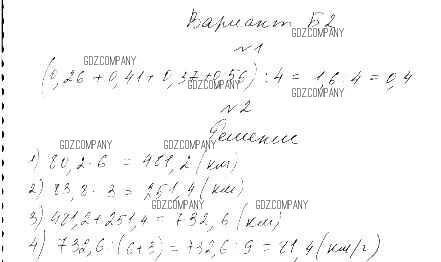 Вариант Б2
GDZCOMPANY
№1
GDZCOMPANY
(0,26 + 0,41 + 0,37 + 0,56) : 4 = 1,6 : 4 = 0,4
GDZCOMPANY
GDZCOMPANY
№2
Решение
GDZCOMPANY GDZCOMPANY
1) 80,2 · 6 = 481,2 (км)
2) 83,8 · 3 = 251,4 (км)
GDZCOMPANY GDZCOMPANY
3) 481,2 + 251,4 = 732,6 (км)
4) 732,6 : (6+3) = 732,6 : 9 = 81,4 (км/г)